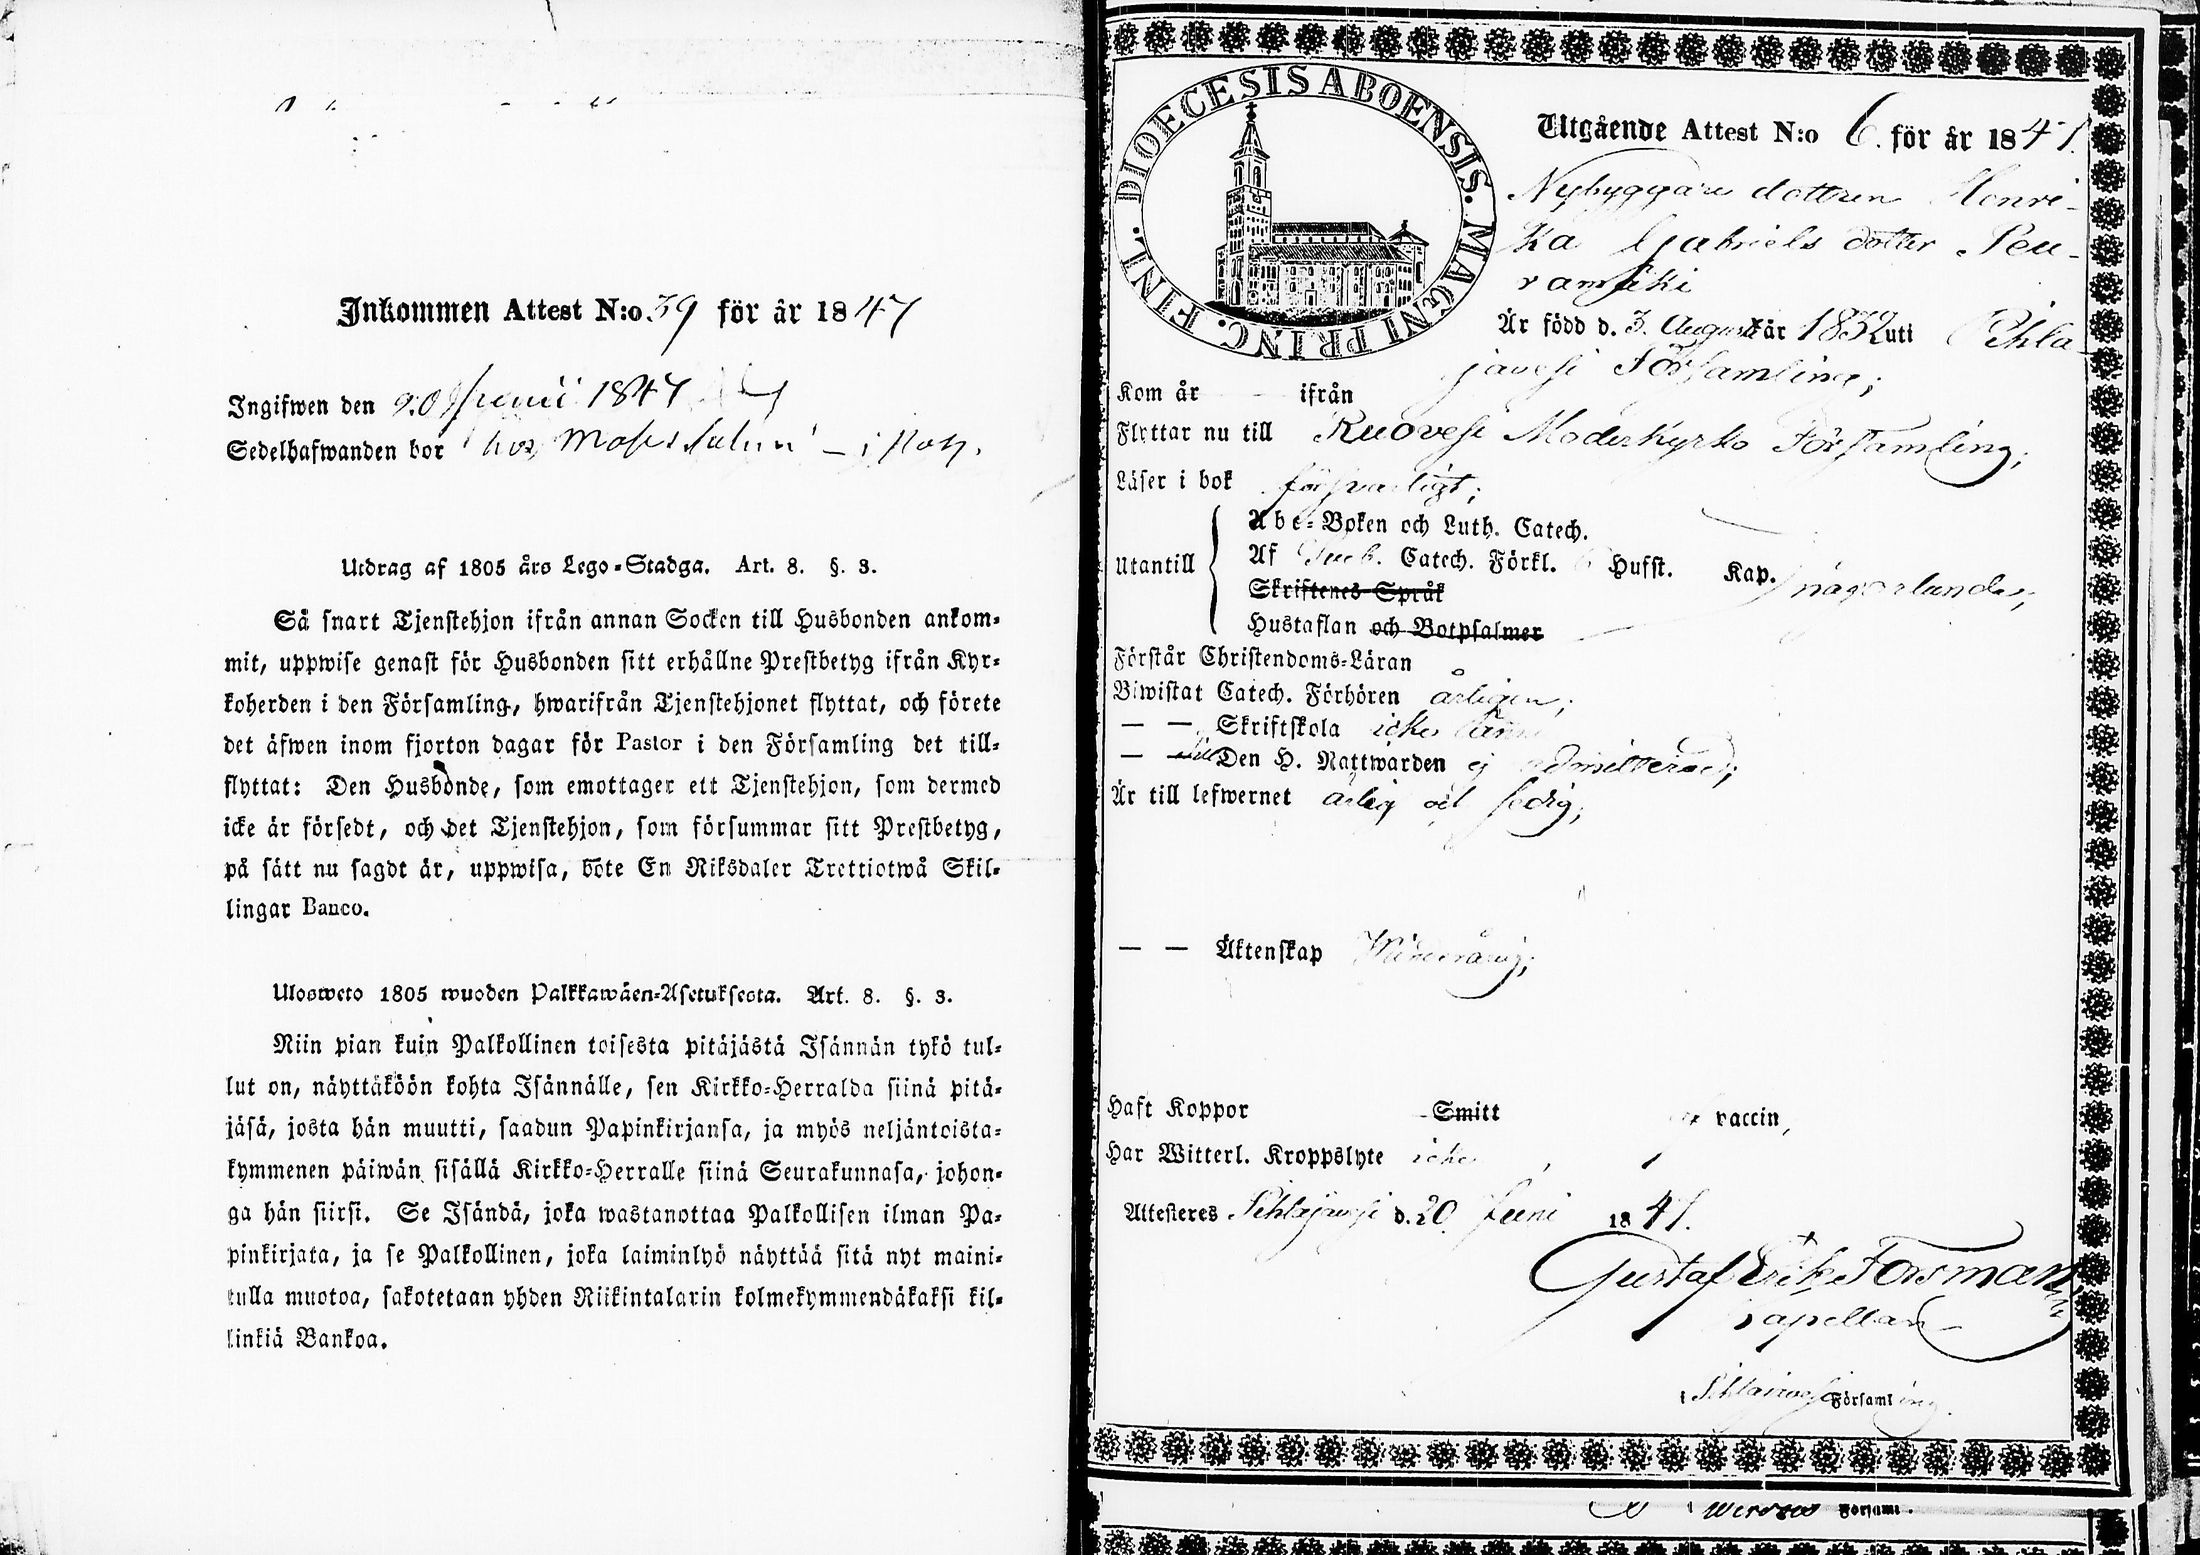 Inkommen Attest N:o 39 för år 1847
Ingifwen den 20 Juni 1847
Sedelhafwanden bor hos
Utdrag af 1805 års Lego-Stadga. Art. 8. §. 3.
Så snart Tjenstehjon ifrån annan Socken till Husbonden ankom-
mit, uppwise genast för Husbonden sitt erhållne Prestbetyg ifrån Kyr-
koherden i den Församling, hwarifrån Tjenstehjonet flyttat, och förete
det äfwen inom fjorton dagar för Pastor i den Församling det till-
flyttat: Den Husbonde, som emottager ett Tjenstehjon, som dermed
icke är försedt, och det Tjenstehjon, som försummar sitt Prestbetyg,
på sätt nu sagdt är, uppwisa, böte En Riksdaler Trettiotwå Skil-
lingar Banco.
Ulosweto 1805 wuoden Palkkawäen-Asetuksesta. Art. 8. §. 3.
Niin pian kuin Palkollinen toisesta pitäjästä Isännän tykö tul-
lut on, näyttäköön kohta Isännälle, sen Kirkko-Herralda siinä pitä-
jäsä, josta hän muutti, saadun Papinkirjansa, ja myös neljäntoista-
kymmenen päiwän sisällä Kirkko-Herralle siinä Seurakunnasa, johon-
ga hän siirsi. Se Isändä, joka wastanottaa Palkollisen ilman Pa-
pinkirjata, ja se Palkollinen, joka laiminlyö näyttää sitä nyt maini-
tulla muotoa, sakotetaan yhden Riikintalarin kolmekymmendäkaksi kil-
linkiä Bankoa.
DIOECESIS ABOENSIS. MAGNI PRINC. FINL.
Utgående Attest N:o 6. för år 1847.
Nybyggare dottren Henri-
ka Gabriels dotter Peu-
ramäki
Är född d. 3. Augusti år 1832 uti Pihla-
javesi Församling;
Kom år ifrån
Flyttar nu till Ruovesi Moderkyrko Församling;
Läser i bok försvarligt;
Utantill
Abc-Boken och Luth. Catech.
Af Catech. Förkl. Hufst. Kap.
Skriftenes Språk
Hustaflan och Botpsalmer
någorlunda;
Förstår Christendoms-Läran
Biwistat Catech. Förhören årligen;
— — Skriftskola icke
— — Till Den H. Nattwarden ej admitterad;
Är till lefwernet ärlig och sedig;
— — Äktenskap Minderårig;
Haft Koppor Smitt vaccin,
Har Witterl. Kroppslyte icke
Attesteres Pihlajavesi d. 20 Juni 1847.
Gustaf Erik Forsman
Capellan
i Pihlajavesi Församling.
Församl.